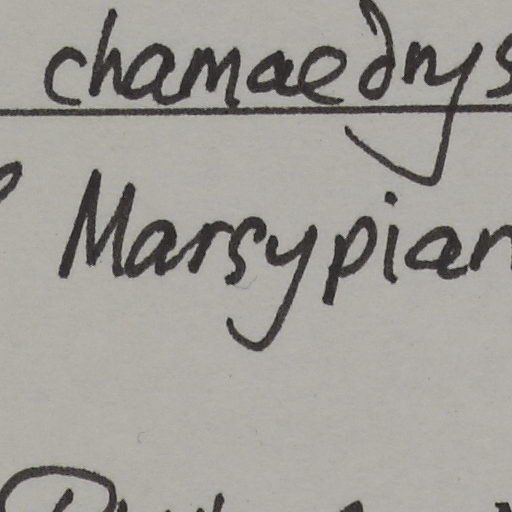 chamaedrys
Marsypian